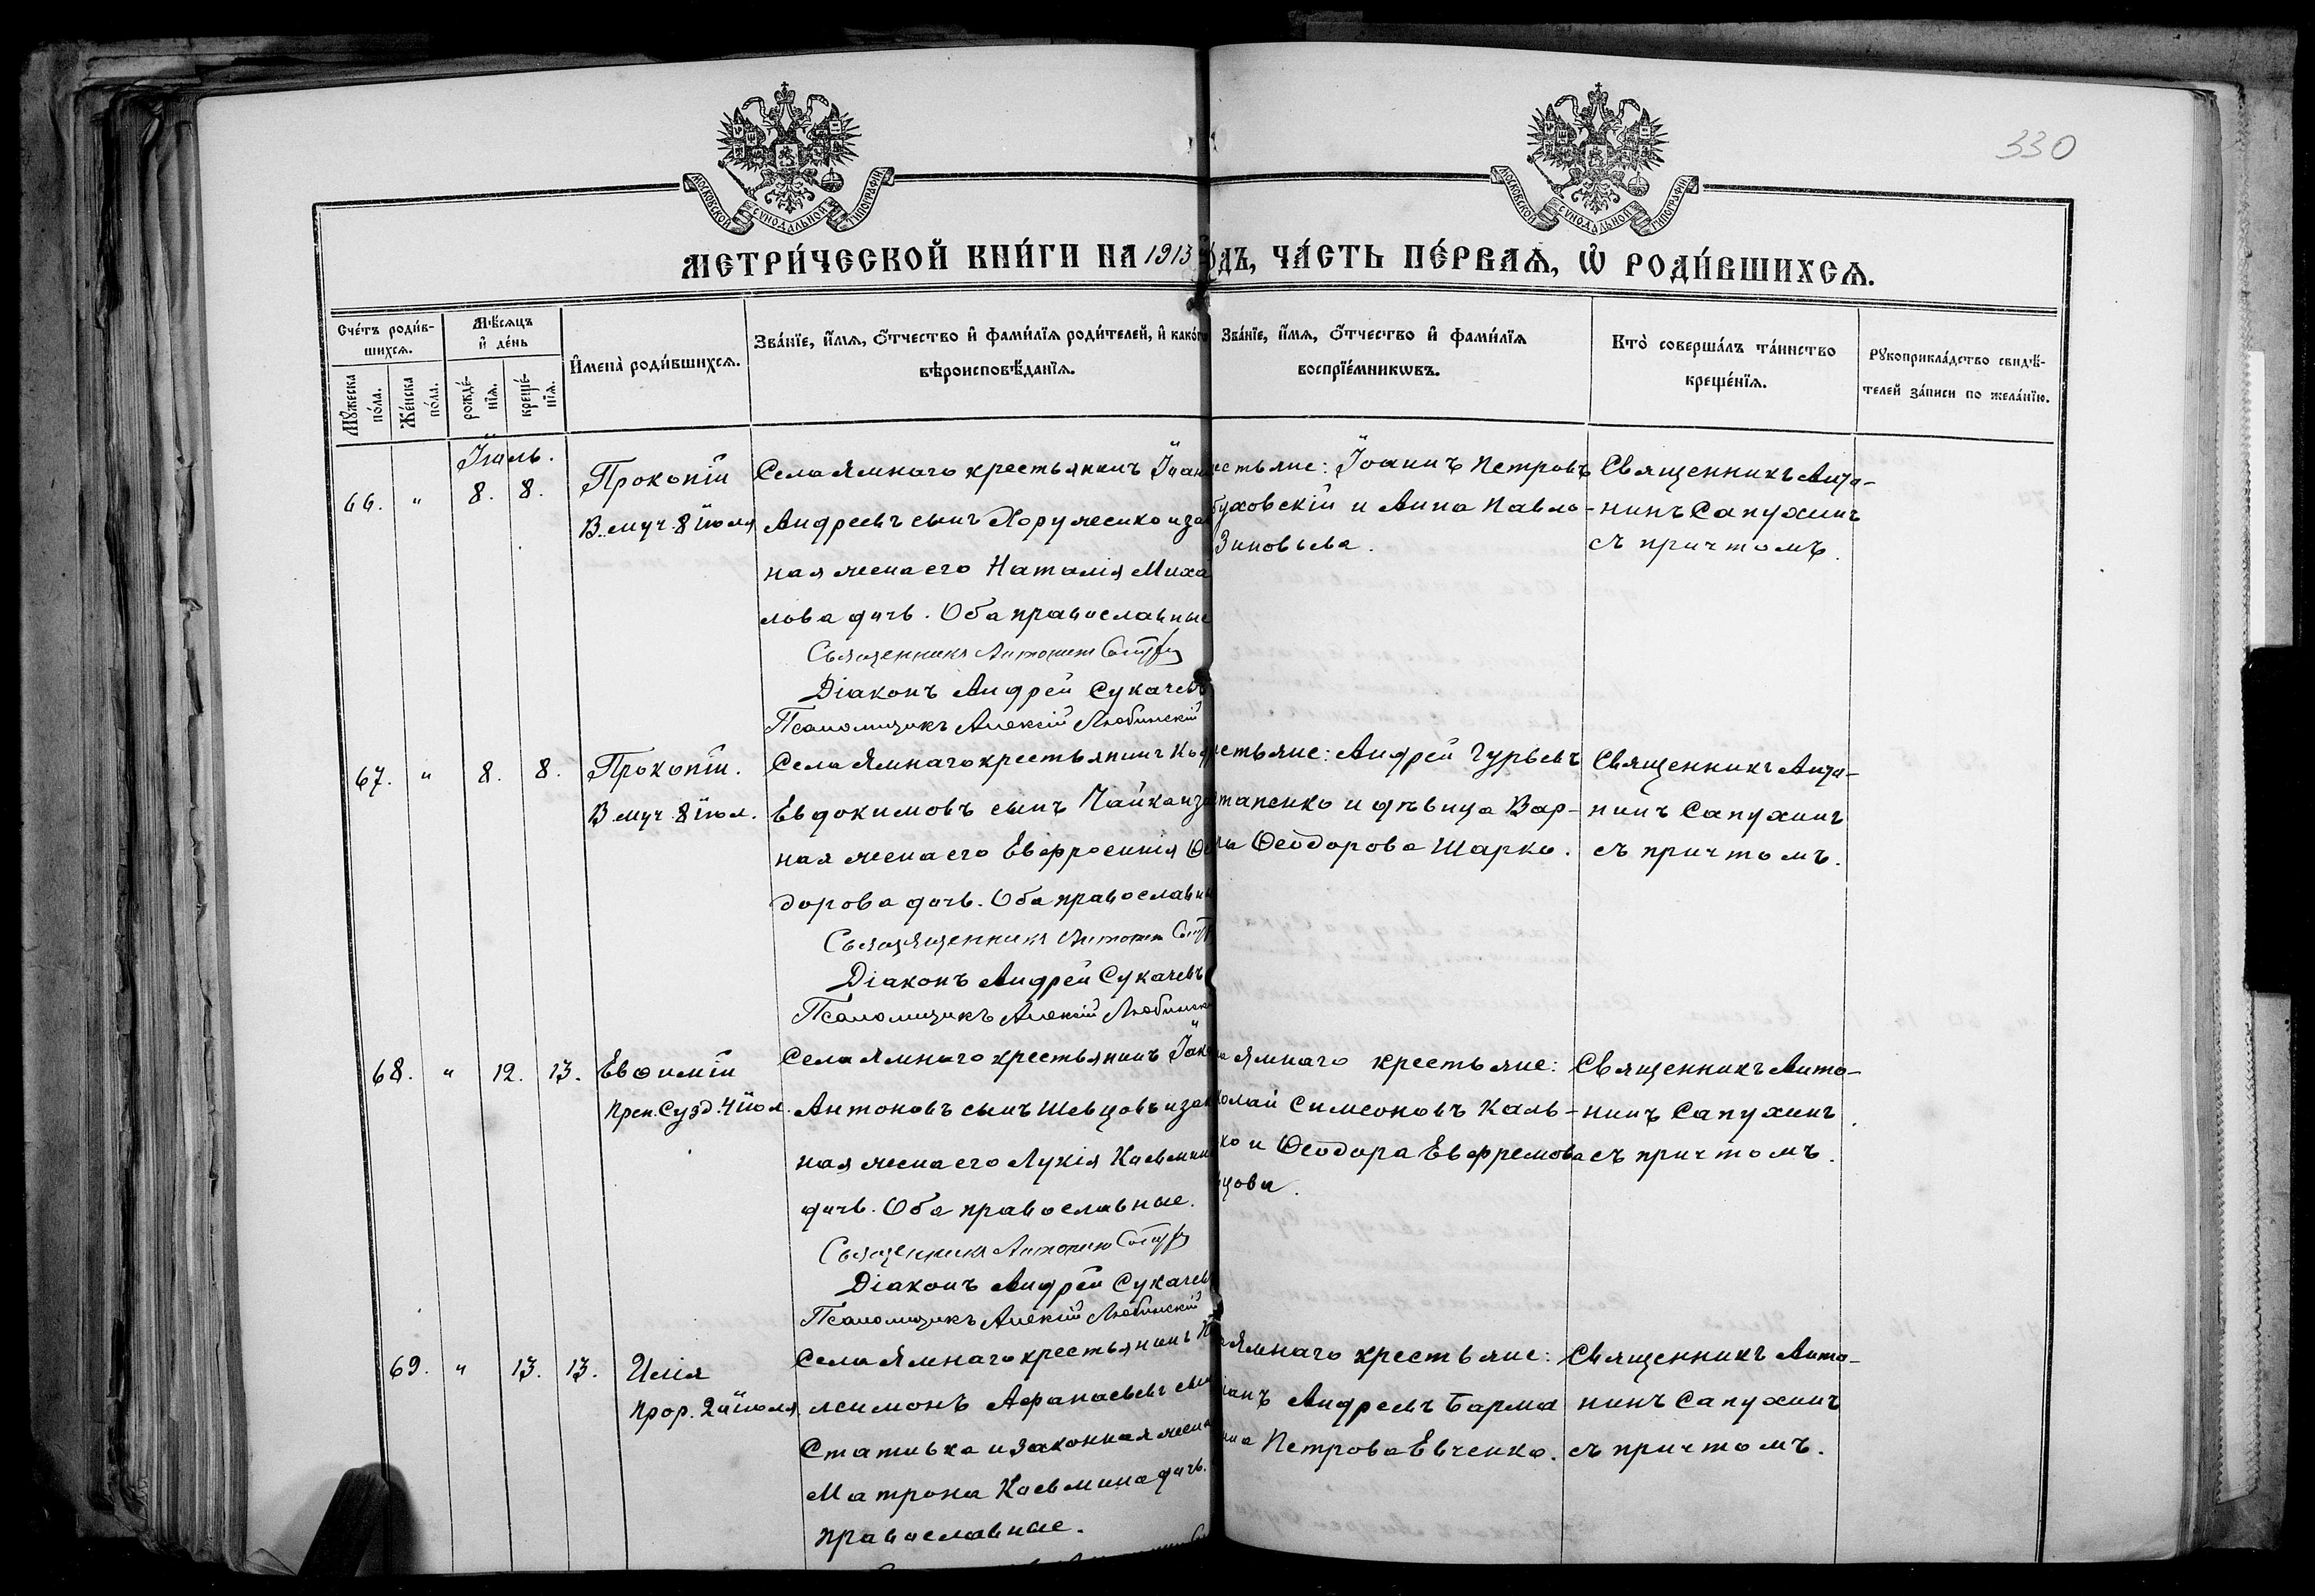 330
МОСКОВСКОЙ СУНОДАЛЬНОЙ ТИПОГРАФІИ
МОСКОВСКОЙ СУНОДАЛЬНОЙ ТИПОГРАФІИ
МЕТРИ́ЧЕСКОЙ КНИ́ГИ НА 1913 ДЪ, ЧА́СТЬ ПЕ́РВАѦ, Ѡ РОДИ́ВШИХСѦ.
Сче́тъ роди́в-
шихсѧ.
Мꙋжеска
по́ла.
Же́нска
по́ла.
Мѣ́сяцъ
и де́нь
рожде́-
нїѧ.
креще́-
нїѧ.
Имена̀ роди́вшихсѧ.
Зва́нїе, и́мѧ, ѻ́тчество и фами́лїѧ роди́телей, и како́гѡ
вѣроисповѣ́данїѧ.
Зва́нїе, и́мѧ, ѻ́тчество и фами́лїѧ
воспрїе́мникѡвъ.
Кто̀ соверша́лъ та́инство
креще́нїѧ.
Рꙋкоприкла́дство свидѣ́-
телей за́писи по жела́нїю.
Іюль.
66. " 8. 8.
Прокопій
В.муч. 8 іюля
Села Ямнаго крестьянинъ Іоан
Андреевъ сынъ Хоруженко и зак
ная жена его Наталія Миха
лова дочь. Оба православные
Священникъ Антонинъ
Діаконъ Андрей Сукачевъ
Псаломщикъ Алексій Любинскій
стьяне: Іоаннъ Петровъ
буховскій и Анна Павло-
Зиновьева.
Священникъ Анто-
нинъ Сапухинъ
съ причтомъ.
67. " 8. 8.
Прокопій.
В муч. 8 іюл.
Села Ямнаго крестьянинъ
Евдокимовъ сынъ Чайка и за
ная жена его Евфросинія Ѳе
дорова дочь. Оба православны
Священникъ Антонинъ
Діаконъ Андрей Сукачевъ
Псаломщикъ Алексій Любинск
стьяне: Андрей Гурьевъ
тапенко и дѣвица Вар-
ра Ѳеодорова Шарко.
Священникъ Анто-
нинъ Сапухинъ
съ причтомъ.
68. " 12. 13.
Евѳимій
Преп. Сузд. 4 іюл.
Села Ямнаго крестьянинъ Іак
Антоновъ сынъ Шевцовъ и зак
ная жена его Лукія Косьмин
дочь. Оба православные.
Священникъ Антонинъ
Діаконъ Андрей Сукачев
Псаломщикъ Алексій Любинскій
а Ямнаго крестьяне:
колай Симеоновъ Каль-
ко и Ѳеодора Евфремова
цова.
Священникъ Анто-
нинъ Сапухинъ
съ причтомъ.
69. " 13. 13.
Илія
Прор. 20 іюля
Села Ямнаго крестьянинъ
лимонъ Афанасьевъ сын
Стативка и законная жена
Матрона Косьмина дочь.
православные.
Ямнаго крестьяне:
іанъ Андреевъ Барма
на Петрова Евченко.
Священникъ Анто-
нинъ Сапухинъ
съ причтомъ.